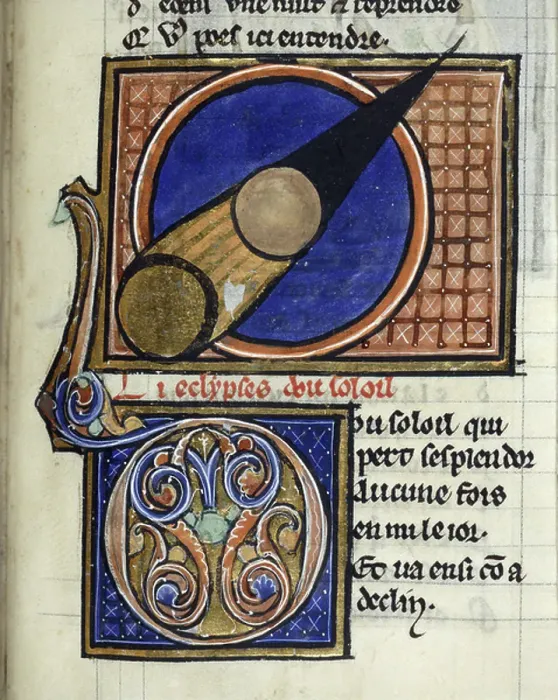 vne nuit & reprendre
Et vꝰ poes ici entendre.
Li eclypses dou soloil
Dou soloil qui
pert sesplendor
Aucune fois
en mi le ior.
Et ua ensi cō a
declin.